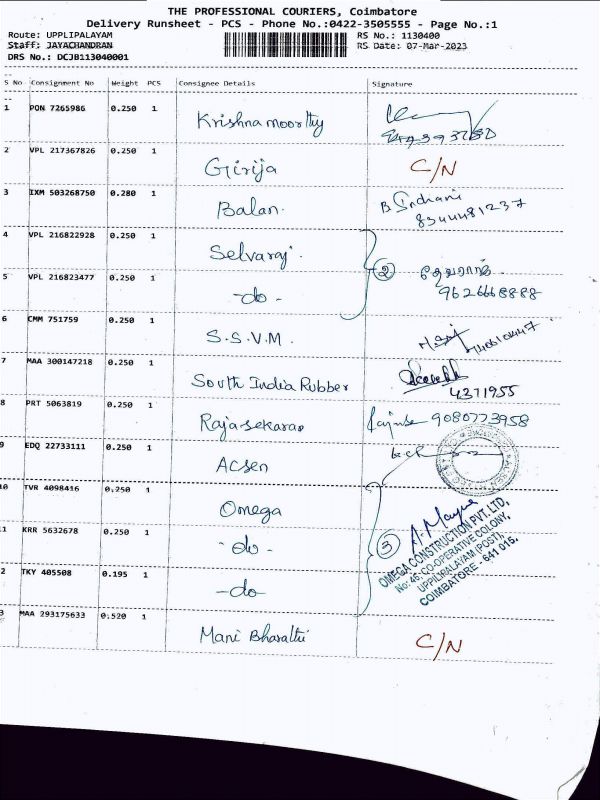 THE PROFESSIONAL COURIERS, Coimbatore
Delivery Runsheet - PCS - Phone No.:0422-3505555 - Page No.:1
Route: UPPLIPALAYAM RS No.: 1130400
Staff: JAYACHANDRAN RS Date: 07-Mar-2023
DRS No.: DCJB113040001
S No Consignment No Weight PCS Consignee Details Signature
1 PON 7265986 0.250 1 Krishnamoorthy
2 VPL 217367826 0.250 1 Girija C/N
3 IXM 503268750 0.280 1 Balan. B. Indhani
8344481237
4 VPL 216822928 0.250 1 Selvaraj.
② தேவராஜ்
5 VPL 216823477 0.250 1 -do- 9626668888
6 CMM 751759 0.250 1 S.S.V.M.
7 MAA 300147218 0.250 1 South India Rubber
4371955
8 PRT 5063819 0.250 1 Rajasekaran 9080773958
9 EDQ 22733111 0.250 1 Acsen
10 TVR 4098416 0.250 1 Omega
11 KRR 5632678 0.250 1 -do- ③
OMEGA CONSTRUCTION PVT. LTD,
No: 46, CO-OPERATIVE COLONY,
UPPILIPALAYAM (POST),
COIMBATORE - 641 015.
2 TKY 405508 0.195 1 -do-
3 MAA 293175633 0.520 1 Mani Bharathi C/N